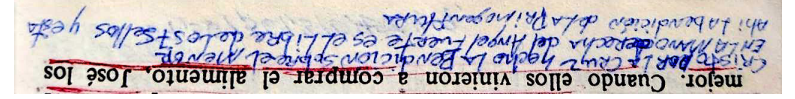 mejor. Cuando ellos vinieron a comprar el alimento, José los
CRISTO POR LA CRUZ hecho LA BENdicion sobre el menor
EN LA MANO derecha del Angel Fuerte es el Libro de los 7 Sellos y esta
Ahi La bendición de La Primogenitura